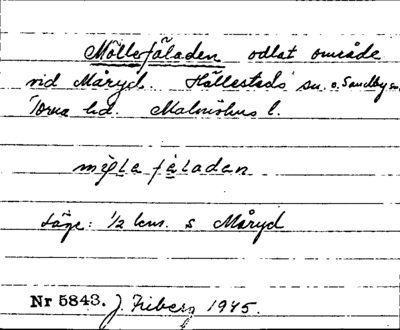 Möllefäladen odlat område
vid Måryd. Hällestads sn. o. Sandby sn.
Torna hd. Malmöhus l.
fäladan
Läge: 1/2 km. s Måryd
Nr 5843. J. Friberg 1945.